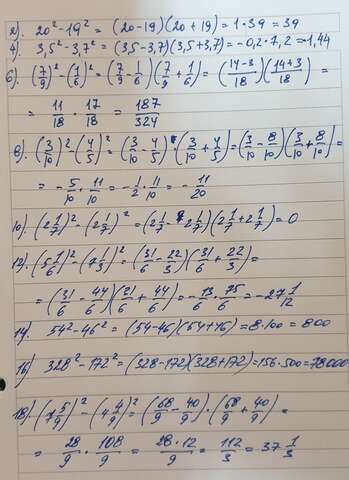 2). 20² - 19² = (20 - 19)(20 + 19) = 1 · 39 = 39
4). 3,5² - 3,7² = (3,5 - 3,7)(3,5 + 3,7) = -0,2 · 7,2 = -1,44
6). (7/9)² - (1/6)² = (7/9 - 1/6)(7/9 + 1/6) = ((14-3)/18)((14+3)/18) =
= 11/18 · 17/18 = 187/324
8). (3/10)² - (4/5)² = (3/10 - 4/5) · (3/10 + 4/5) = (3/10 - 8/10)(3/10 + 8/10) =
= -5/10 · 11/10 = -1/2 · 11/10 = -11/20
10). (2 1/7)² - (2 1/7)² = (2 1/7 - 2 1/7)(2 1/7 + 2 1/7) = 0
12). (5 1/6)² - (7 1/3)² = (31/6 - 22/3)(31/6 + 22/3) =
= (31/6 - 44/6)(31/6 + 44/6) = -13/6 · 75/6 = -27 1/12
14). 54² - 46² = (54 - 46)(54 + 46) = 8 · 100 = 800
16) 328² - 172² = (328 - 172)(328 + 172) = 156 · 500 = 78000
18). (7 5/9)² - (4 4/9)² = (68/9 - 40/9) · (68/9 + 40/9) =
= 28/9 · 108/9 = 28 · 12/9 = 112/3 = 37 1/3